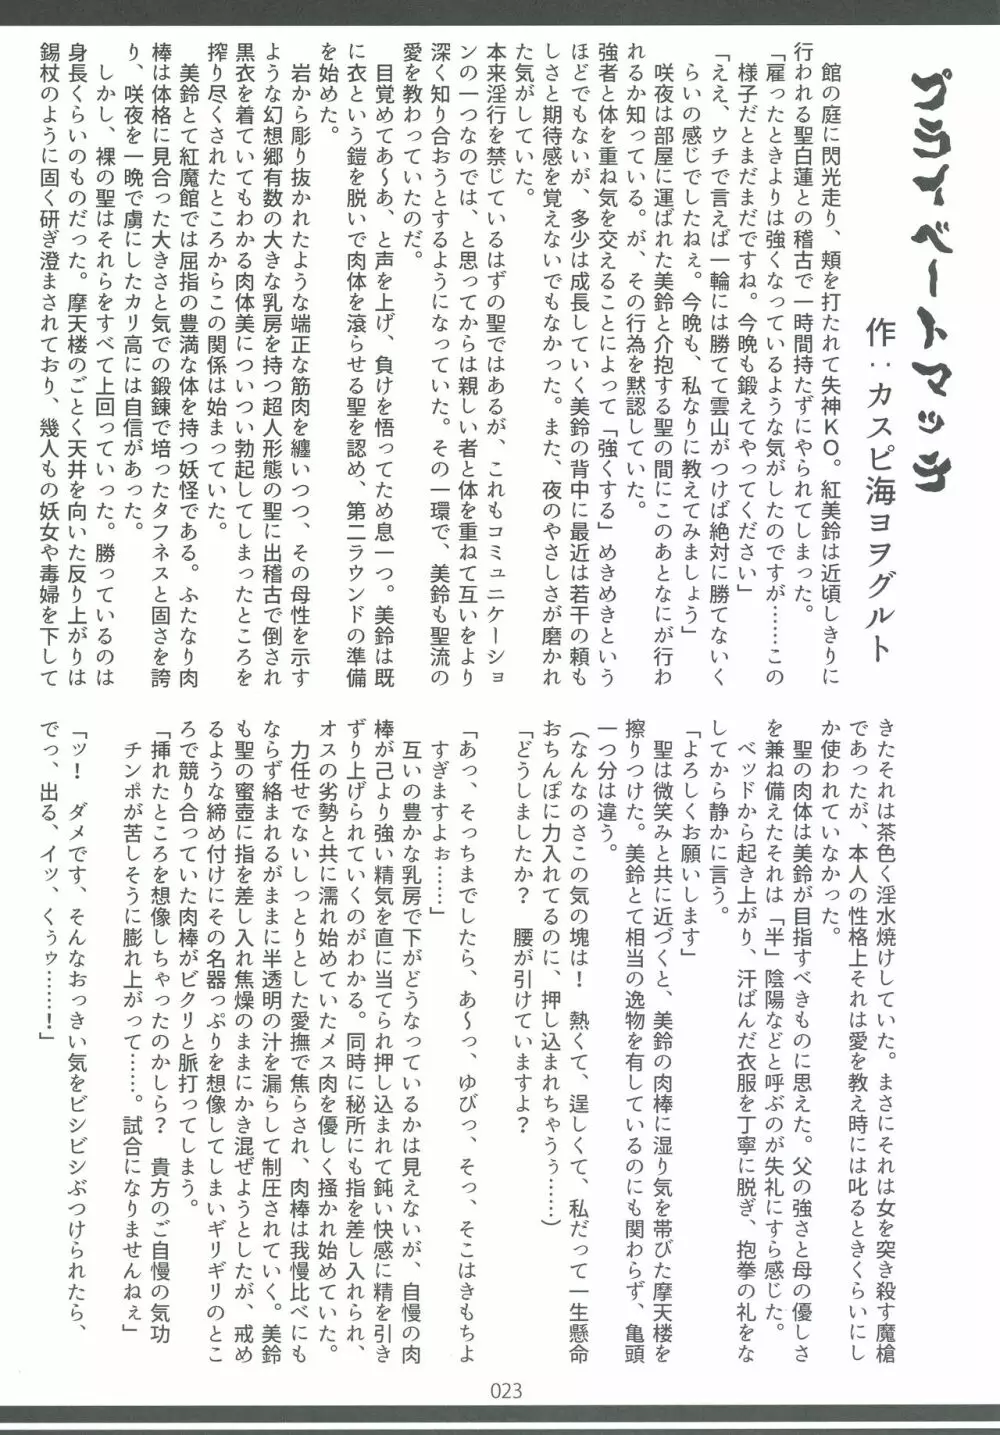 プライベートマッチ
作：カスピ海ヨヲグルト
館の庭に閃光走り、頬を打たれて失神KO。紅美鈴は近頃しきりに
行われる聖白蓮との稽古で一時間持たずにやられてしまった。
「雇ったときよりは強くなっているような気がしたのですが……この
様子だとまだまだですね。今晩も鍛えてやってください」
「ええ、ウチで言えば一輪には勝てて雲山がつけば絶対に勝てないく
らいの感じでしたねぇ。今晩も、私なりに教えてみましょう」
咲夜は部屋に運ばれた美鈴と介抱する聖の間にこのあとなにが行わ
れるか知っている。が、その行為を黙認していた。
強者と体を重ね気を交えることによって「強くする」めきめきという
ほどでもないが、多少は成長していく美鈴の背中に最近は若干の頼も
しさと期待感を覚えないでもなかった。また、夜のやさしさが磨かれ
た気がしていた。
本来淫行を禁じているはずの聖ではあるが、これもコミュニケーショ
ンの一つなのでは、と思ってからは親しい者と体を重ねて互いをより
深く知り合おうとするようになっていた。その一環で、美鈴も聖流の
愛を教わっていたのだ。
目覚めてあ～あ、と声を上げ、負けを悟ってため息一つ。美鈴は既
に衣という鎧を脱いで肉体を滾らせる聖を認め、第二ラウンドの準備
を始めた。
岩から彫り抜かれたような端正な筋肉を纏いつつ、その母性を示す
ような幻想郷有数の大きな乳房を持つ超人形態の聖に出稽古で倒され
黒衣を着ていてもわかる肉体美についつい勃起してしまったところを
搾り尽くされたところからこの関係は始まっていた。
美鈴とて紅魔館では屈指の豊満な体を持つ妖怪である。ふたなり肉
棒は体格に見合った大きさと気での鍛錬で培ったタフネスと固さを誇
り、咲夜を一晩で虜にしたカリ高には自信があった。
しかし、裸の聖はそれらをすべて上回っていった。勝っているのは
身長くらいのものだった。摩天楼のごとく天井を向いた反り上がりは
錫杖のように固く研ぎ澄まされており、幾人もの妖女や毒婦を下して
きたそれは茶色く淫水焼けしていた。まさにそれは女を突き殺す魔槍
であったが、本人の性格上それは愛を教え時には叱るときくらいにし
か使われていなかった。
聖の肉体は美鈴が目指すべきものに思えた。父の強さと母の優しさ
を兼ね備えたそれは「半」陰陽などと呼ぶのが失礼にすら感じた。
ベッドから起き上がり、汗ばんだ衣服を丁寧に脱ぎ、抱拳の礼をな
してから静かに言う。
「よろしくお願いします」
聖は微笑みと共に近づくと、美鈴の肉棒に湿り気を帯びた摩天楼を
擦りつけた。美鈴とて相当の逸物を有しているのにも関わらず、亀頭
一つ分は違う。
（なんなのさこの気の塊は！　熱くて、逞しくて、私だって一生懸命
おちんぽに力入れてるのに、押し込まれちゃうぅ……）
「どうしましたか？　腰が引けていますよ？
「あっ、そっちまでしたら、あ～っ、ゆびっ、そっ、そこはきもちよ
すぎますよぉ……」
互いの豊かな乳房で下がどうなっているかは見えないが、自慢の肉
棒が己より強い精気を直に当てられ押し込まれて鈍い快感に精を引き
ずり上げられていくのがわかる。同時に秘所にも指を差し入れられ、
オスの劣勢と共に濡れ始めていたメス肉を優しく掻かれ始めていた。
力任せでないしっとりとした愛撫で焦らされ、肉棒は我慢比べにも
ならず絡まれるがままに半透明の汁を漏らして制圧されていく。美鈴
も聖の蜜壺に指を差し入れ焦燥のままにかき混ぜようとしたが、戒め
るような締め付けにその名器っぷりを想像してしまいギリギリのとこ
ろで競り合っていた肉棒がビクリと脈打ってしまう。
「挿れたところを想像しちゃったのかしら？　貴方のご自慢の気功
チンポが苦しそうに膨れ上がって……。試合になりませんねぇ」
「ッ！　ダメです、そんなおっきい気をビシビシぶつけられたら、
でっ、出る、イッ、くぅゥ……！」
023